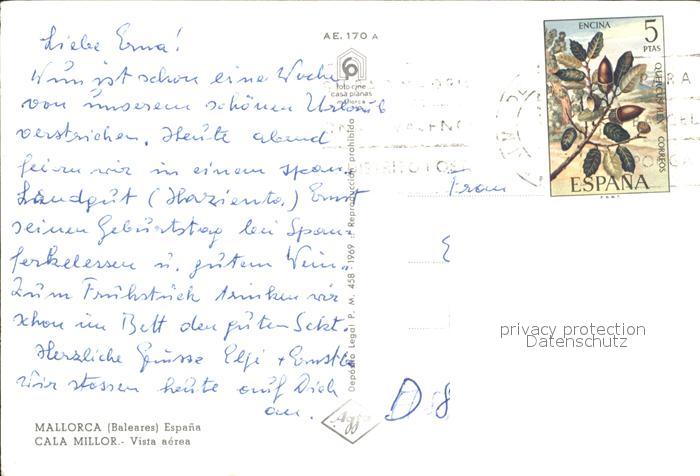 Liebe Erna!
Nun ist schon eine Woche
von unserem schönen Urlaub
verstrichen. Heute abend
feiern wir in einem span.
Landgut (Hazienta) Ernst
seinen Geburtstag bei Span-
ferkelessen u. gutem Wein.
Zum Frühstück trinken wir
schon im Bett den guten Sekt.
Herzliche Grüsse Elfi + Ernstle
wir stossen heute auf Dich
an.
MALLORCA (Baleares) España
CALA MILLOR.- Vista aérea
AE. 170 A
foto cine
casa planas
Depósito Legal P. M. 458 - 1969 - Reproducción prohibida
Frau
E
D 88
ENCINA
5
PTAS
QUERCUS ILEX
CORREOS
ESPAÑA
F.N.M.T.
privacy protection
Datenschutz